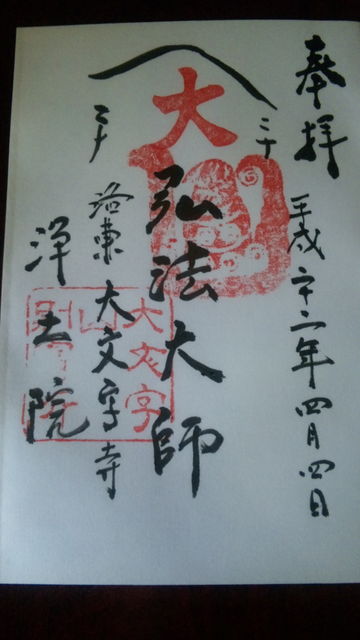 奉拝
平成二十二年四月四日
大
弘法大師
洛東 大文字寺
浄土院
大文字
山